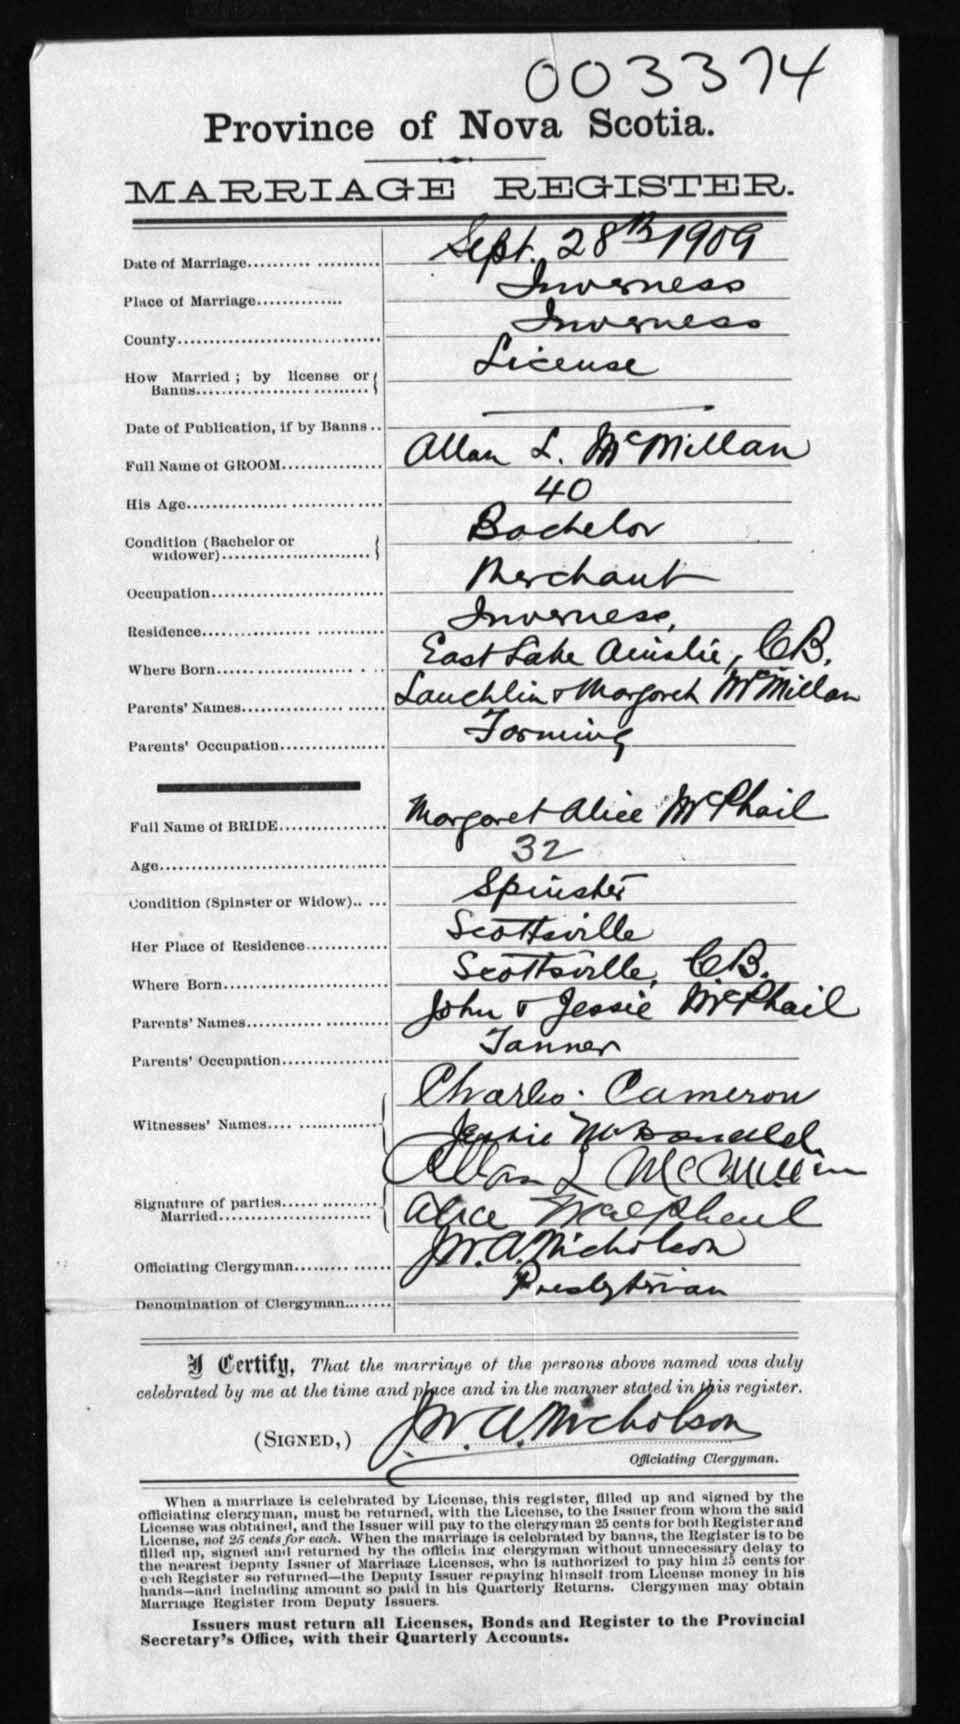 003374
Province of Nova Scotia.
MARRIAGE REGISTER.
Date of Marriage.......... ........... Sept. 28th 1909
Place of Marriage.............. Inverness
County.................................. Inverness
How Married ; by license or License
Banns..................................
Date of Publication, if by Banns .. ———
Full Name of GROOM................ Allan L. McMillan
His Age.................................. 40
Condition (Bachelor or Bachelor
widower)..........................
Occupation............................. Merchant
Residence............................... Inverness,
Where Born............................ East Lake Ainslie, C.B.
Parents' Names....................... Lauchlin & Margaret McMillan
Parents' Occupation................. Farming
Full Name of BRIDE................. Margaret Alice McPhail
Age....................................... 32
Condition (Spinster or Widow).. ... Spinster
Her Place of Residence............ Scottsville
Where Born........................... Scottsville, C.B.
Parents' Names...................... John & Jessie McPhail
Parents' Occupation................ Tanner
Charles Cameron
Witnesses' Names.... .............. Jessie McDonald
Allan L McMillan
Signature of parties................
Married........................... Alice MacPhail
Officiating Clergyman............... J.W.A. Nicholson
Denomination of Clergyman........ Presbyterian
I Certify, That the marriage of the persons above named was duly
celebrated by me at the time and place and in the manner stated in this register.
(SIGNED,) J.W.A. Nicholson
Officiating Clergyman.
When a marriage is celebrated by License, this register, filled up and signed by the
officiating clergyman, must be returned, with the License, to the Issuer from whom the said
License was obtained, and the Issuer will pay to the clergyman 25 cents for both Register and
License, not 25 cents for each. When the marriage is celebrated by banns, the Register is to be
filled up, signed and returned by the officia ing clergyman without unnecessary delay to
the nearest Deputy Issuer of Marriage Licenses, who is authorized to pay him 25 cents for
each Register so returned—the Deputy Issuer repaying himself from License money in his
hands—and including amount so paid in his Quarterly Returns. Clergymen may obtain
Marriage Register from Deputy Issuers.
Issuers must return all Licenses, Bonds and Register to the Provincial
Secretary's Office, with their Quarterly Accounts.